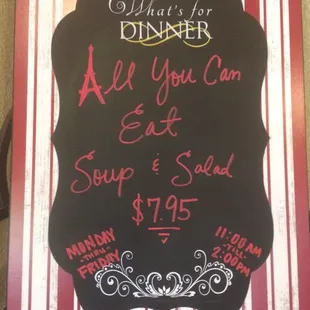 What's for
DINNER
All You Can
Eat
Soup & Salad
$7.95
MONDAY
-THRU-
FRIDAY
11:00AM
-TILL-
2:00PM